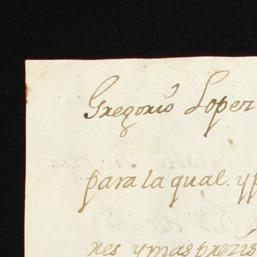 Gregorio Lopez
para la qual. y p
res y mas prezis